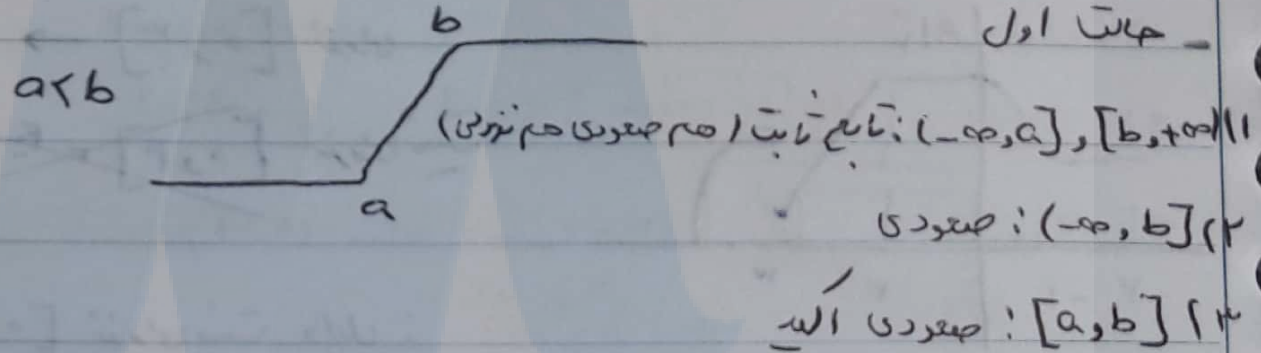 - حالت اول
۱) (-∞,a] , [b,+∞) : تابع ثابت (هم صعودی هم نزولی)
۲) (-∞, b] : صعودی
۳) [a,b] : صعودی اکید
b
a<b
a